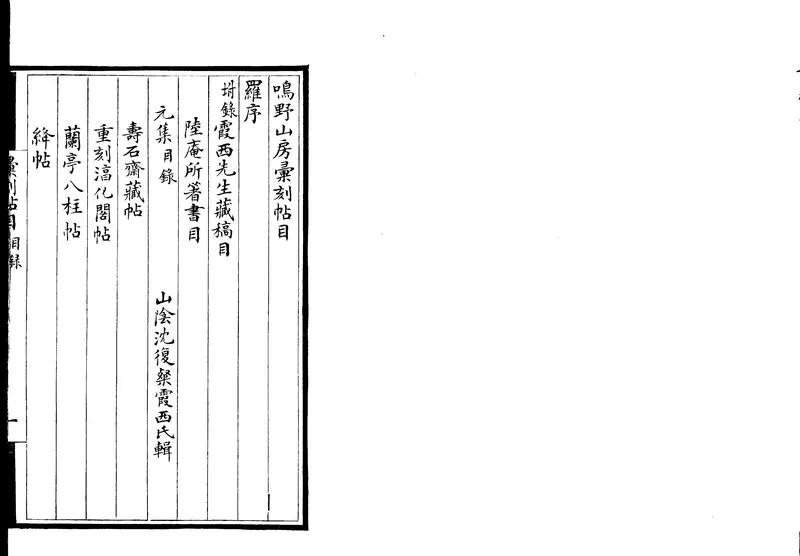 鳴野山房彙刻帖目
羅序
坿錄霞西先生藏稿目
陸庵所箸書目
元集目錄　山陰沈復粲霞西氏輯
壽石齋藏帖
重刻淳化閣帖
蘭亭八柱帖
絳帖
彙刻帖目　目錄　一